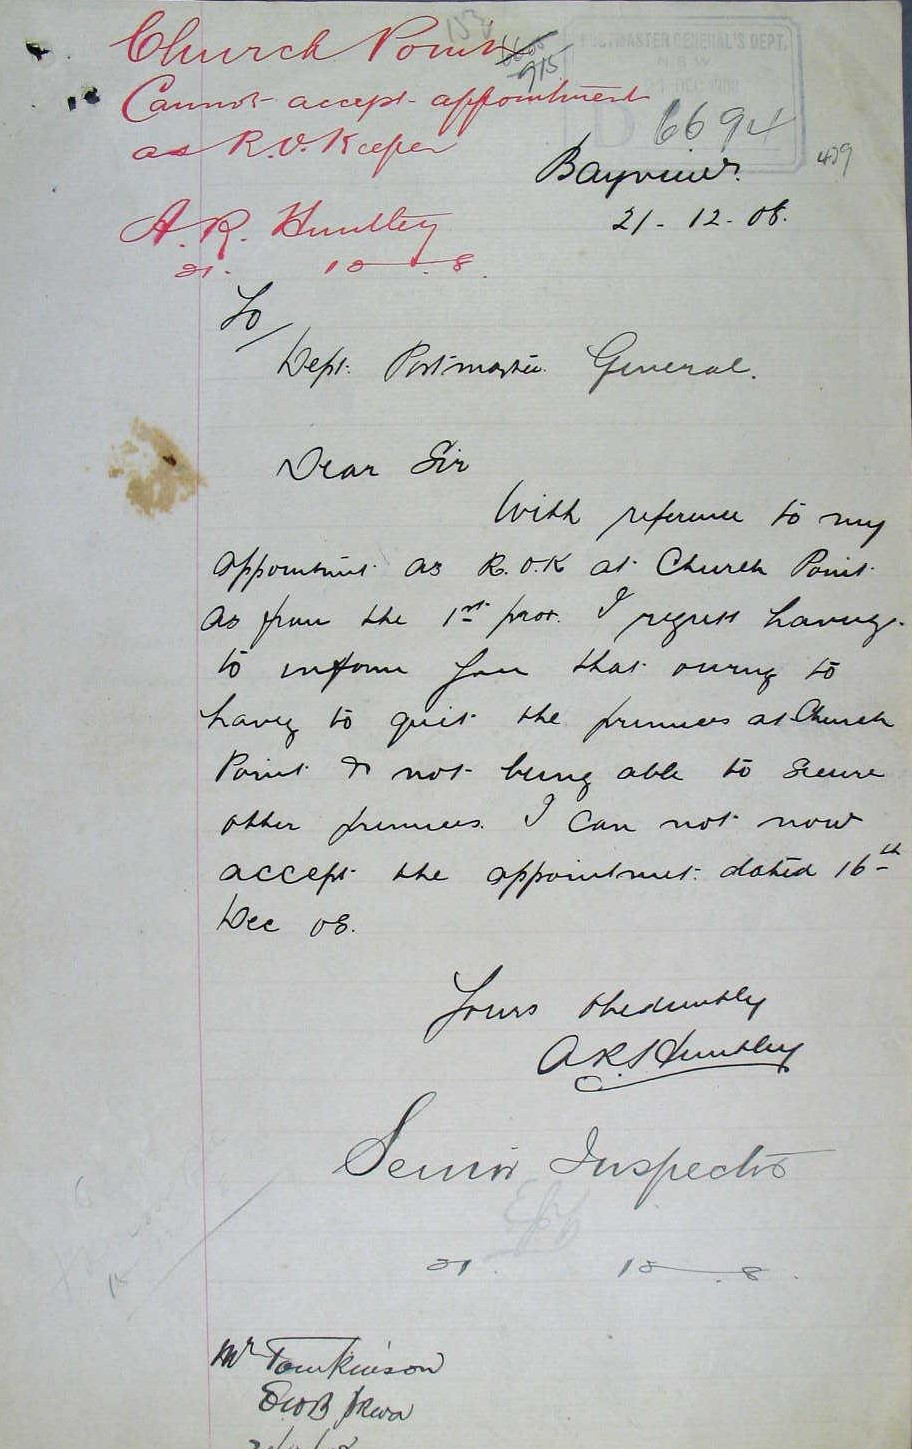 Church Point
Cannot accept appointment
as R.O. Keeper
A. R. Huntley
21. 12 . 8.
POSTMASTER GENERAL'S DEPT.
N.S.W.
DEC 1908
6694
439
Bayview.
21 - 12 - 08.
To/
Dept. Postmaster General.
Dear Sir
With reference to my
appointment as R.O.K at Church Point
as from the 1st prox. I regret having
to inform you that owing to
having to quit the premises at Church
Point & not being able to secure
other premises. I can not now
accept the appointment dated 16th
Dec 08.
Yours Obediently
A R Huntley
Senior Inspector
21. 12 . 8.
Mr Tomkinson